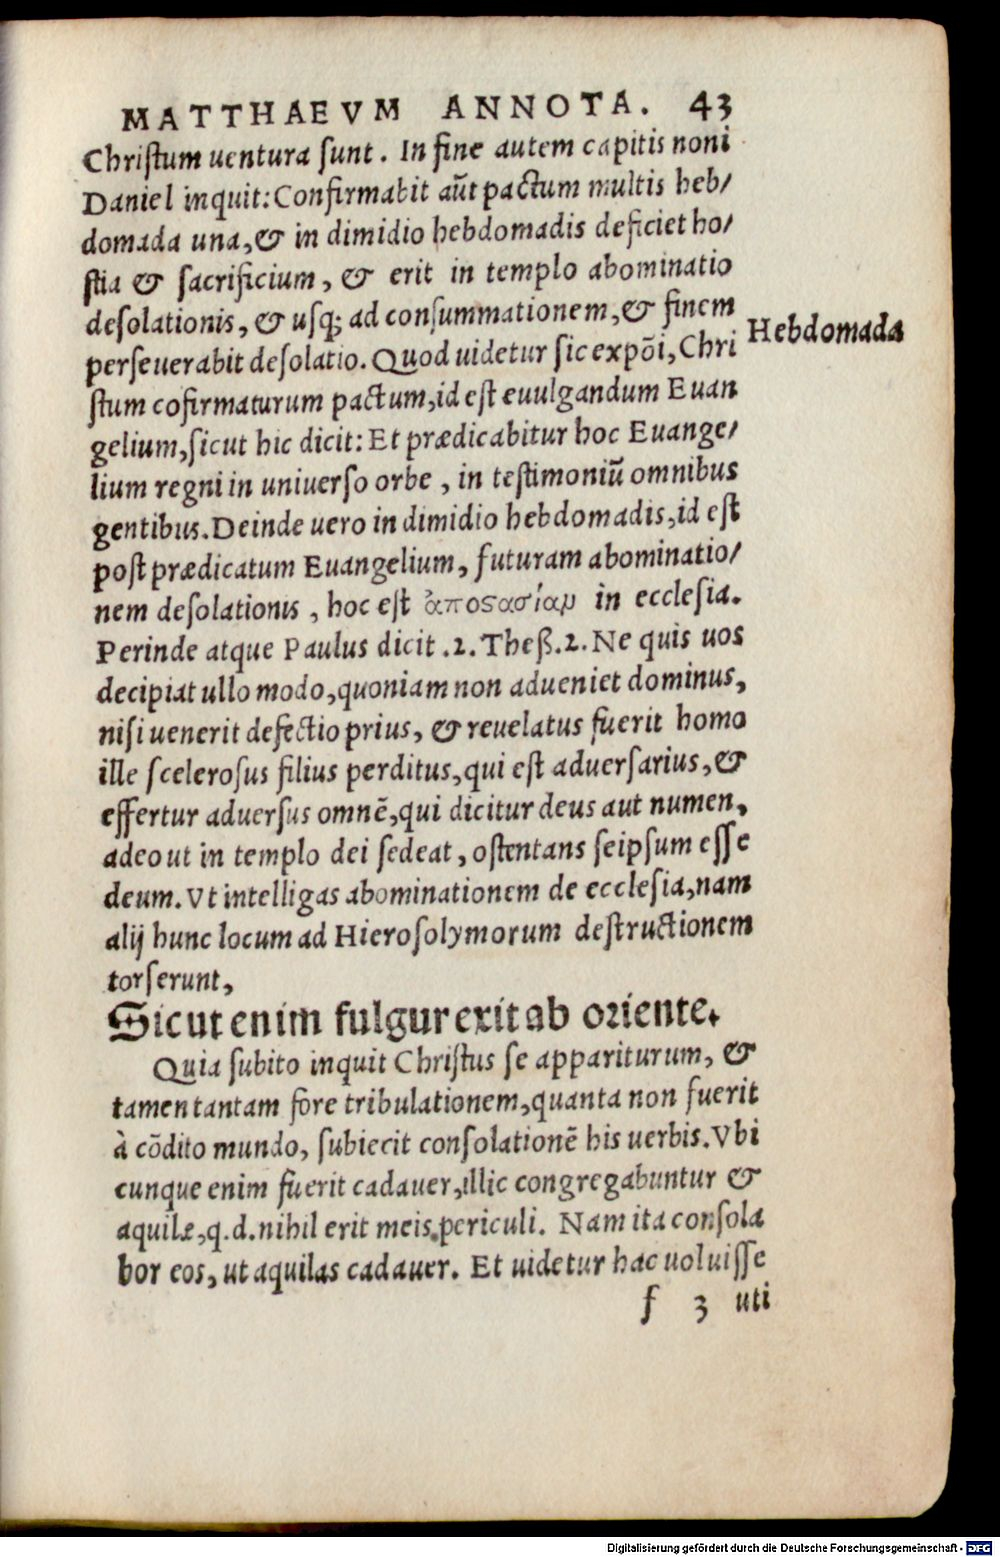 MATTHAEVM ANNOTA. 43
Chriſtum uentura ſunt. In fine autem capitis noni
Daniel inquit: Confirmabit aūt pactum multis heb/
domada una, & in dimidio hebdomadis deficiet ho/
ſtia & ſacrificium, & erit in templo abominatio
deſolationis, & uſq; ad conſummationem, & finem
perſeuerabit deſolatio. Quod uidetur ſic expōi, Chri
Hebdomada
ſtum cofirmaturum pactum, id eſt euulgandum Euan
gelium, ſicut hic dicit: Et prædicabitur hoc Euange/
lium regni in uniuerſo orbe, in teſtimoniū omnibus
gentibus. Deinde uero in dimidio hebdomadis, id eſt
poſt prædicatum Euangelium, futuram abominatio/
nem deſolationis, hoc eſt ἀποϛασίαμ in eccleſia.
Perinde atque Paulus dicit .2. Theß.2. Ne quis uos
decipiat ullo modo, quoniam non adueniet dominus,
niſi uenerit defectio prius, & reuelatus fuerit homo
ille ſceleroſus filius perditus, qui eſt aduerſarius, &
effertur aduerſus omnē, qui dicitur deus aut numen,
adeo ut in templo dei ſedeat, oſtentans ſeipſum eſſe
deum. Vt intelligas abominationem de eccleſia, nam
alij hunc locum ad Hieroſolymorum deſtructionem
torſerunt,
Sicut enim fulgur exit ab oriente.
Quia ſubito inquit Chriſtus ſe appariturum, &
tamen tantam fore tribulationem, quanta non fuerit
à cōdito mundo, ſubiecit conſolationē his uerbis. Vbi
cunque enim fuerit cadauer, illic congregabuntur &
aquilæ, q.d. nihil erit meis periculi. Nam ita conſola
bor eos, ut aquilas cadauer. Et uidetur hac uoluiſſe
f 3 uti
Digitalisierung gefördert durch die Deutsche Forschungsgemeinschaft - DFG